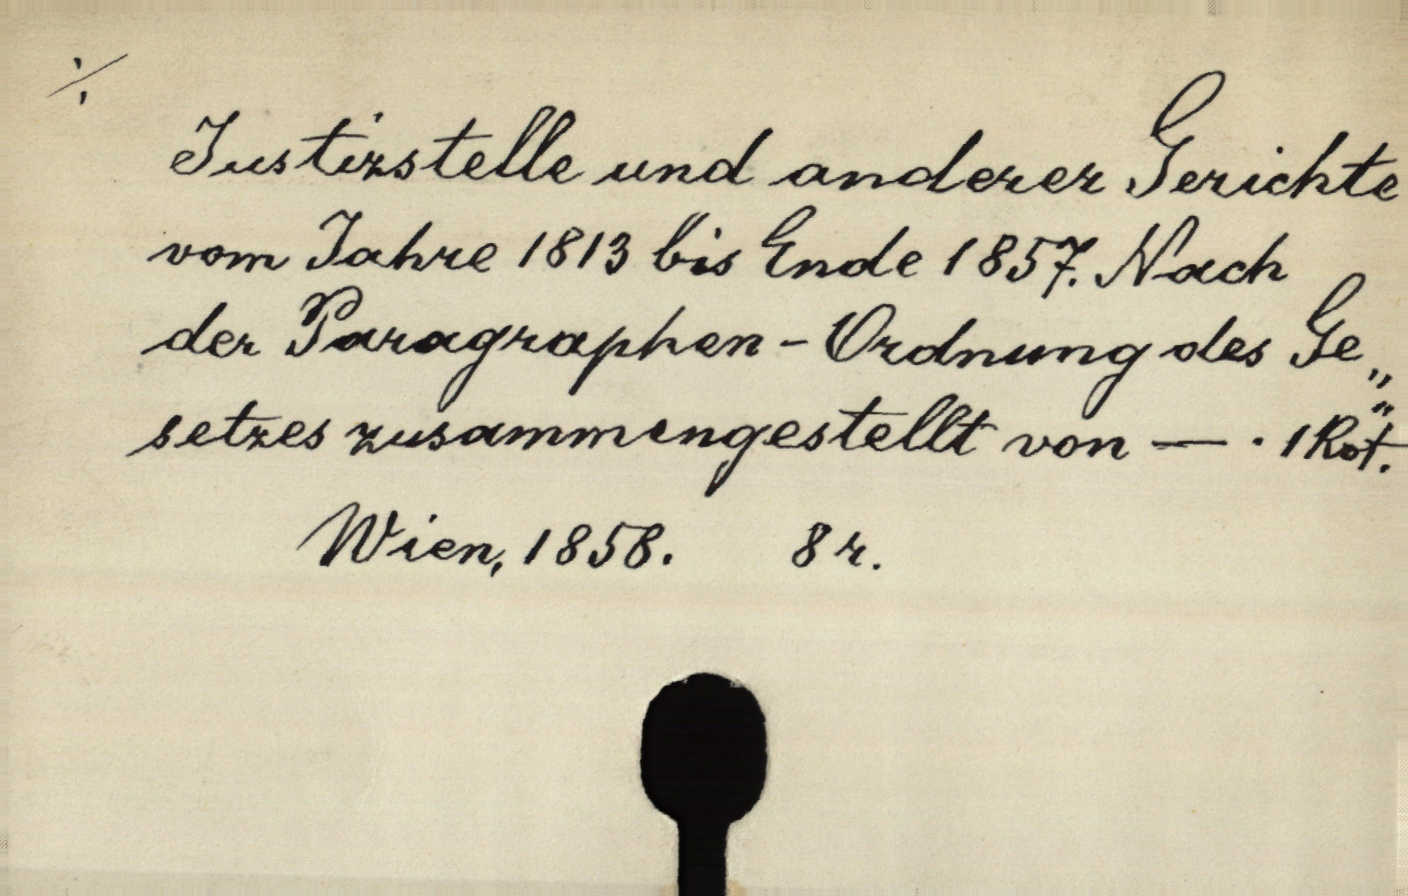 ·/.
Justizstelle und anderer Gerichte
vom Jahre 1813 bis Ende 1857. Nach
der Paragraphen-Ordnung des Ge„
"setzes zusammengestellt von — · 1 Köt.
Wien, 1858. 8 r.